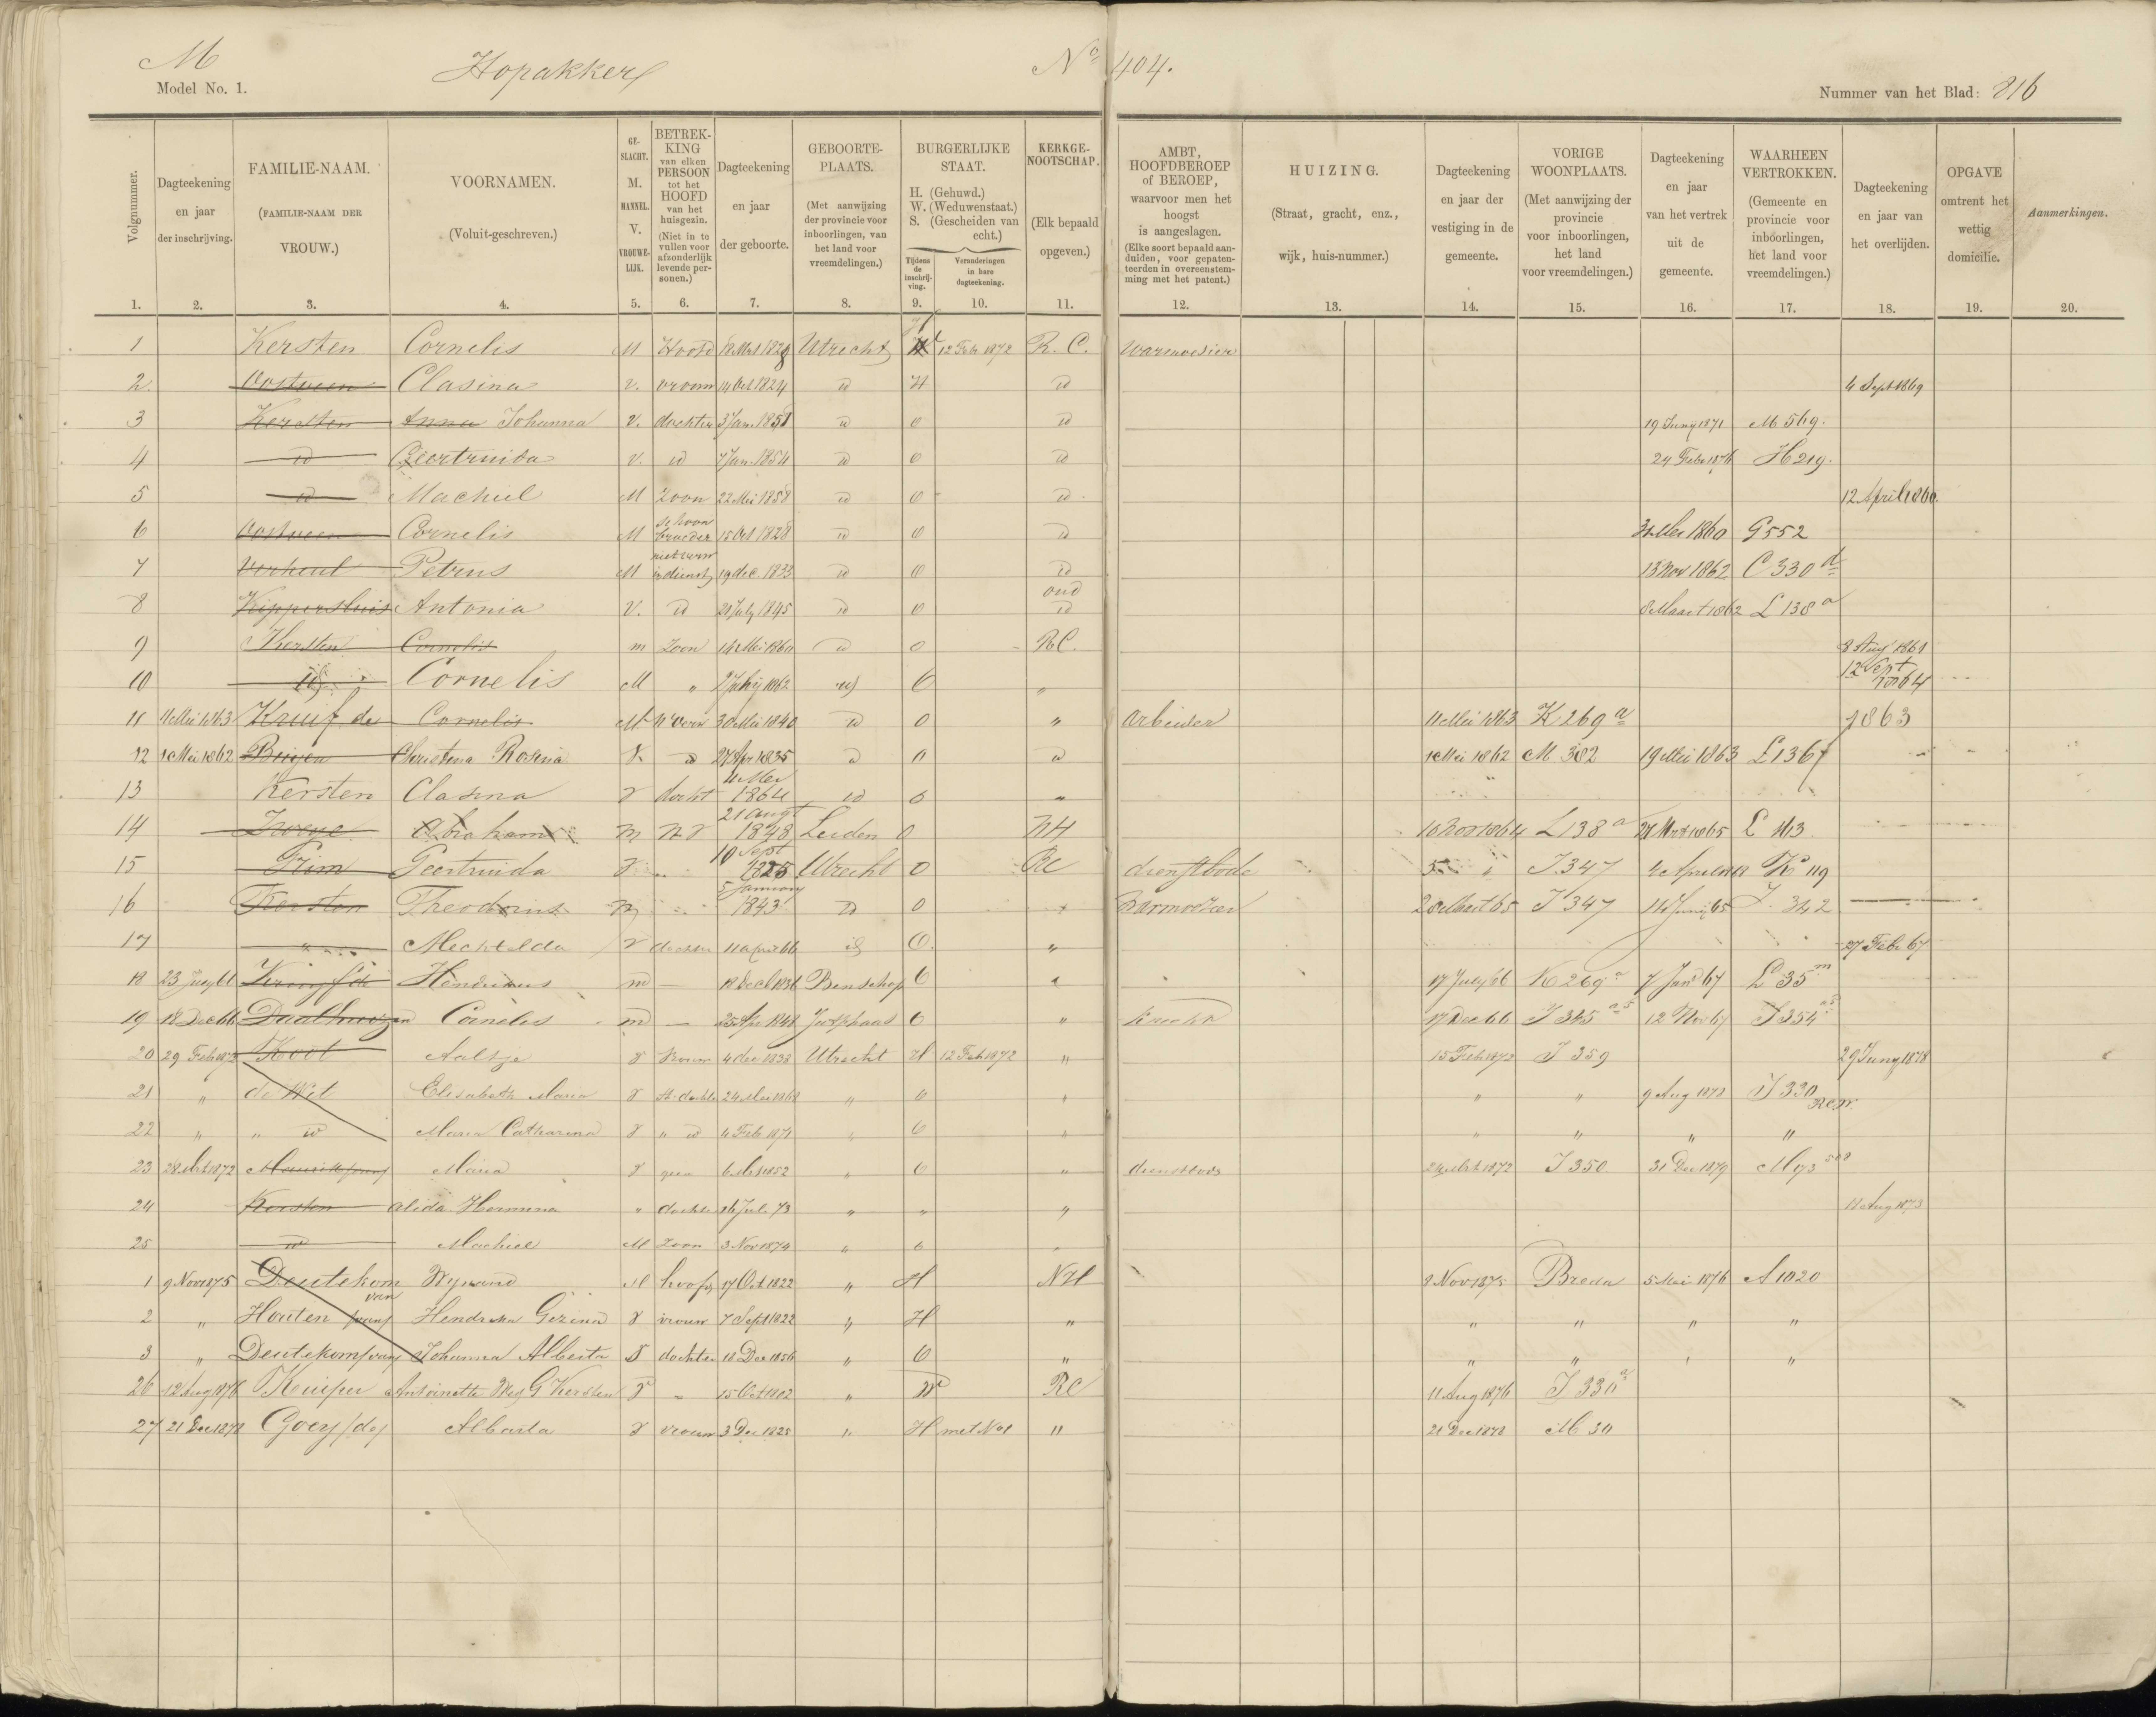 M Hopakker No. 404.
Model No. 1. Nummer van het Blad: 216
Volgnummer. Dagteekening en jaar der inschrijving. FAMILIE-NAAM. (FAMILIE-NAAM DER VROUW.) VOORNAMEN. (Voluit-geschreven.) GE-SLACHT. M. MANNEL. V. VROUWE-LIJK. BETREK-KING van elken PERSOON tot het HOOFD van het huisgezin. (Niet in te vullen voor afzonderlijk levende per-sonen.) Dagteekening en jaar der geboorte. GEBOORTE-PLAATS. (Met aanwijzing der provincie voor inboorlingen, van het land voor vreemdelingen.) BURGERLIJKE STAAT. H. (Gehuwd.) W. (Weduwenstaat.) S. (Gescheiden van echt.) Tijdens de inschrij-ving. Veranderingen in hare dagteekening. KERKGE-NOOTSCHAP. (Elk bepaald opgeven.) AMBT, HOOFDBEROEP of BEROEP, waarvoor men het hoogst is aangeslagen. (Elke soort bepaald aan-duiden, voor gepaten-teerden in overeenstem-ming met het patent.) HUIZING. (Straat, gracht, enz., wijk, huis-nummer.) Dagteekening en jaar der vestiging in de gemeente. VORIGE WOONPLAATS. (Met aanwijzing der provincie voor inboorlingen, het land voor vreemdelingen.) Dagteekening en jaar van het vertrek uit de gemeente. WAARHEEN VERTROKKEN. (Gemeente en provincie voor inboorlingen, het land voor vreemdelingen.) Dagteekening en jaar van het overlijden. OPGAVE omtrent het wettig domicilie. Aanmerkingen.
1. 2. 3. 4. 5. 6. 7. 8. 9. 10. 11. 12. 13. 14. 15. 16. 17. 18. 19. 20.
1 Kersten Cornelis M Hoofd Utrecht 12 Feb 1872 R. C. Warmoesier
2. Oostveen Clasina V. vrouw 14 Oct 1824 id H id 4 Sept 1869
3 Kersten Anna Johanna V. dochter 3 Jan. 1851 id 0 id 19 Juny 1871 M 569.
4 id Geertruida V. id 7 Jan. 1854 id 0 id 24 Febr 1876 H 219.
5 id Machiel M Zoon 22 Mei 1858 id 0 id 12 April 1860.
6 Oostveen Cornelis M schoon broeder 15 Oct 1828 id 0 id Mei 1860 G 552
7 Verheul Petrus M in dienst 19 dec. 1833 id 0 id 13 Nov 1862 C 330 d
8 Kuppersluis Antonia V. id 21 July 1845 id 0 oud id 8 Maart 1862 L 138 a
9 Kersten Cornelis m Zoon 14 Mei 1860 id 0 RC. 8 Aug 1861
10 id Cornelis M " 2 July 1862 id 0 " 12 Sept 1864
11 11 Mei 1863 Kruif de Cornelis M 30 Mei 1840 id 0 " arbeider 11 Mei 1863 K 269 a 1863
12 1 Mei 1862 Christina Rosina V. id 27 Apr 1835 id 0 id 1 Mei 1862 M 382 19 Mei 1863 L 136
13 Kersten Clasina V docht 11 Mei 1864 id 0 "
14 Abraham M 21 Augt 1848 Leiden 0 NH 10 Nov 1864 L 138 a 27 Mrt 1865 L 113
15 Grim Geertruida V 10 Sept 1825 Utrecht 0 RC dienstbode J. 347 K 119
16 Kersten Theodorus M 5 January 1843 id 0 Warmoezier 28 Maart 65 J 347 14 Junij 65 J. 342
17 " Mechtelda V dochter 11 april 66 id 0. " 27 Feb. 67
18 23 July 66 Kruijf de Hendrikus m — 18 Decb 1836 Benschop 0 17 July 66 K 269 a 7 Jan 67 L 35 m
19 18 Dec 66 Cornelis m — 25 Apr 1848 Jutphaas 0 " knecht 17 Dec 66 J 345 12 Nov 67 J 354
20 29 Feb 1872 Koot Aaltje V Vrouw 4 dec 1833 Utrecht H 12 Feb 1872 " 15 Feb 1872 J 359 29 Juny 1878
21 " de Wit Elisabeth Maria V st: dochter 24 Mei 1868 " 0 " " " 9 Aug 1878 J 330
22 " " id Maria Catharina V " id 4 Feb 1871 " 0 " " " " "
23 28 Mrt 1872 Maria V geen 6 Mrt 1852 " 0 " dienstbode 24 Mrt 1872 J 350 31 Dec 1879 M 173
24 Kersten Alida Hermina " dochter 26 Jul. 73 " " " 11 Aug 1873
25 id Machiel M Zoon 3 Nov 1874 " 0 "
1 9 Nov 1875 Deutekom van Wijnand M hoofd 17 Oct 1822 " H NH 8 Nov 1875 Breda 5 Mei 1876 A 1020
2 " Houten van Hendrika Gezina V vrouw 7 Sept 1822 " H " " " " "
3 " Deutekom van Johanna Alberta V dochter 18 Dec 1856 " 0 " " " " "
26 12 Aug 1876 Kuiper Antoinetta Wed G Kersten V — 15 Oct 1802 " W RC 11 Aug 1876 J 330 a
27 21 Dec 1878 Goey de Alberta V vrouw 3 Dec 1825 " H met No 1 " 21 Dec 1878 M 30